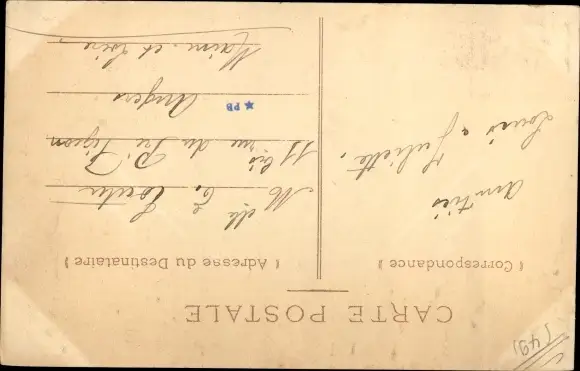 CARTE POSTALE
( Correspondance )
Amitiés
Juliette.
Louis &
( Adresse du Destinataire )
Melle E.
11 bis rue du Pré Pigeon
Angers
Maine et Loire.
★ PB
(49)